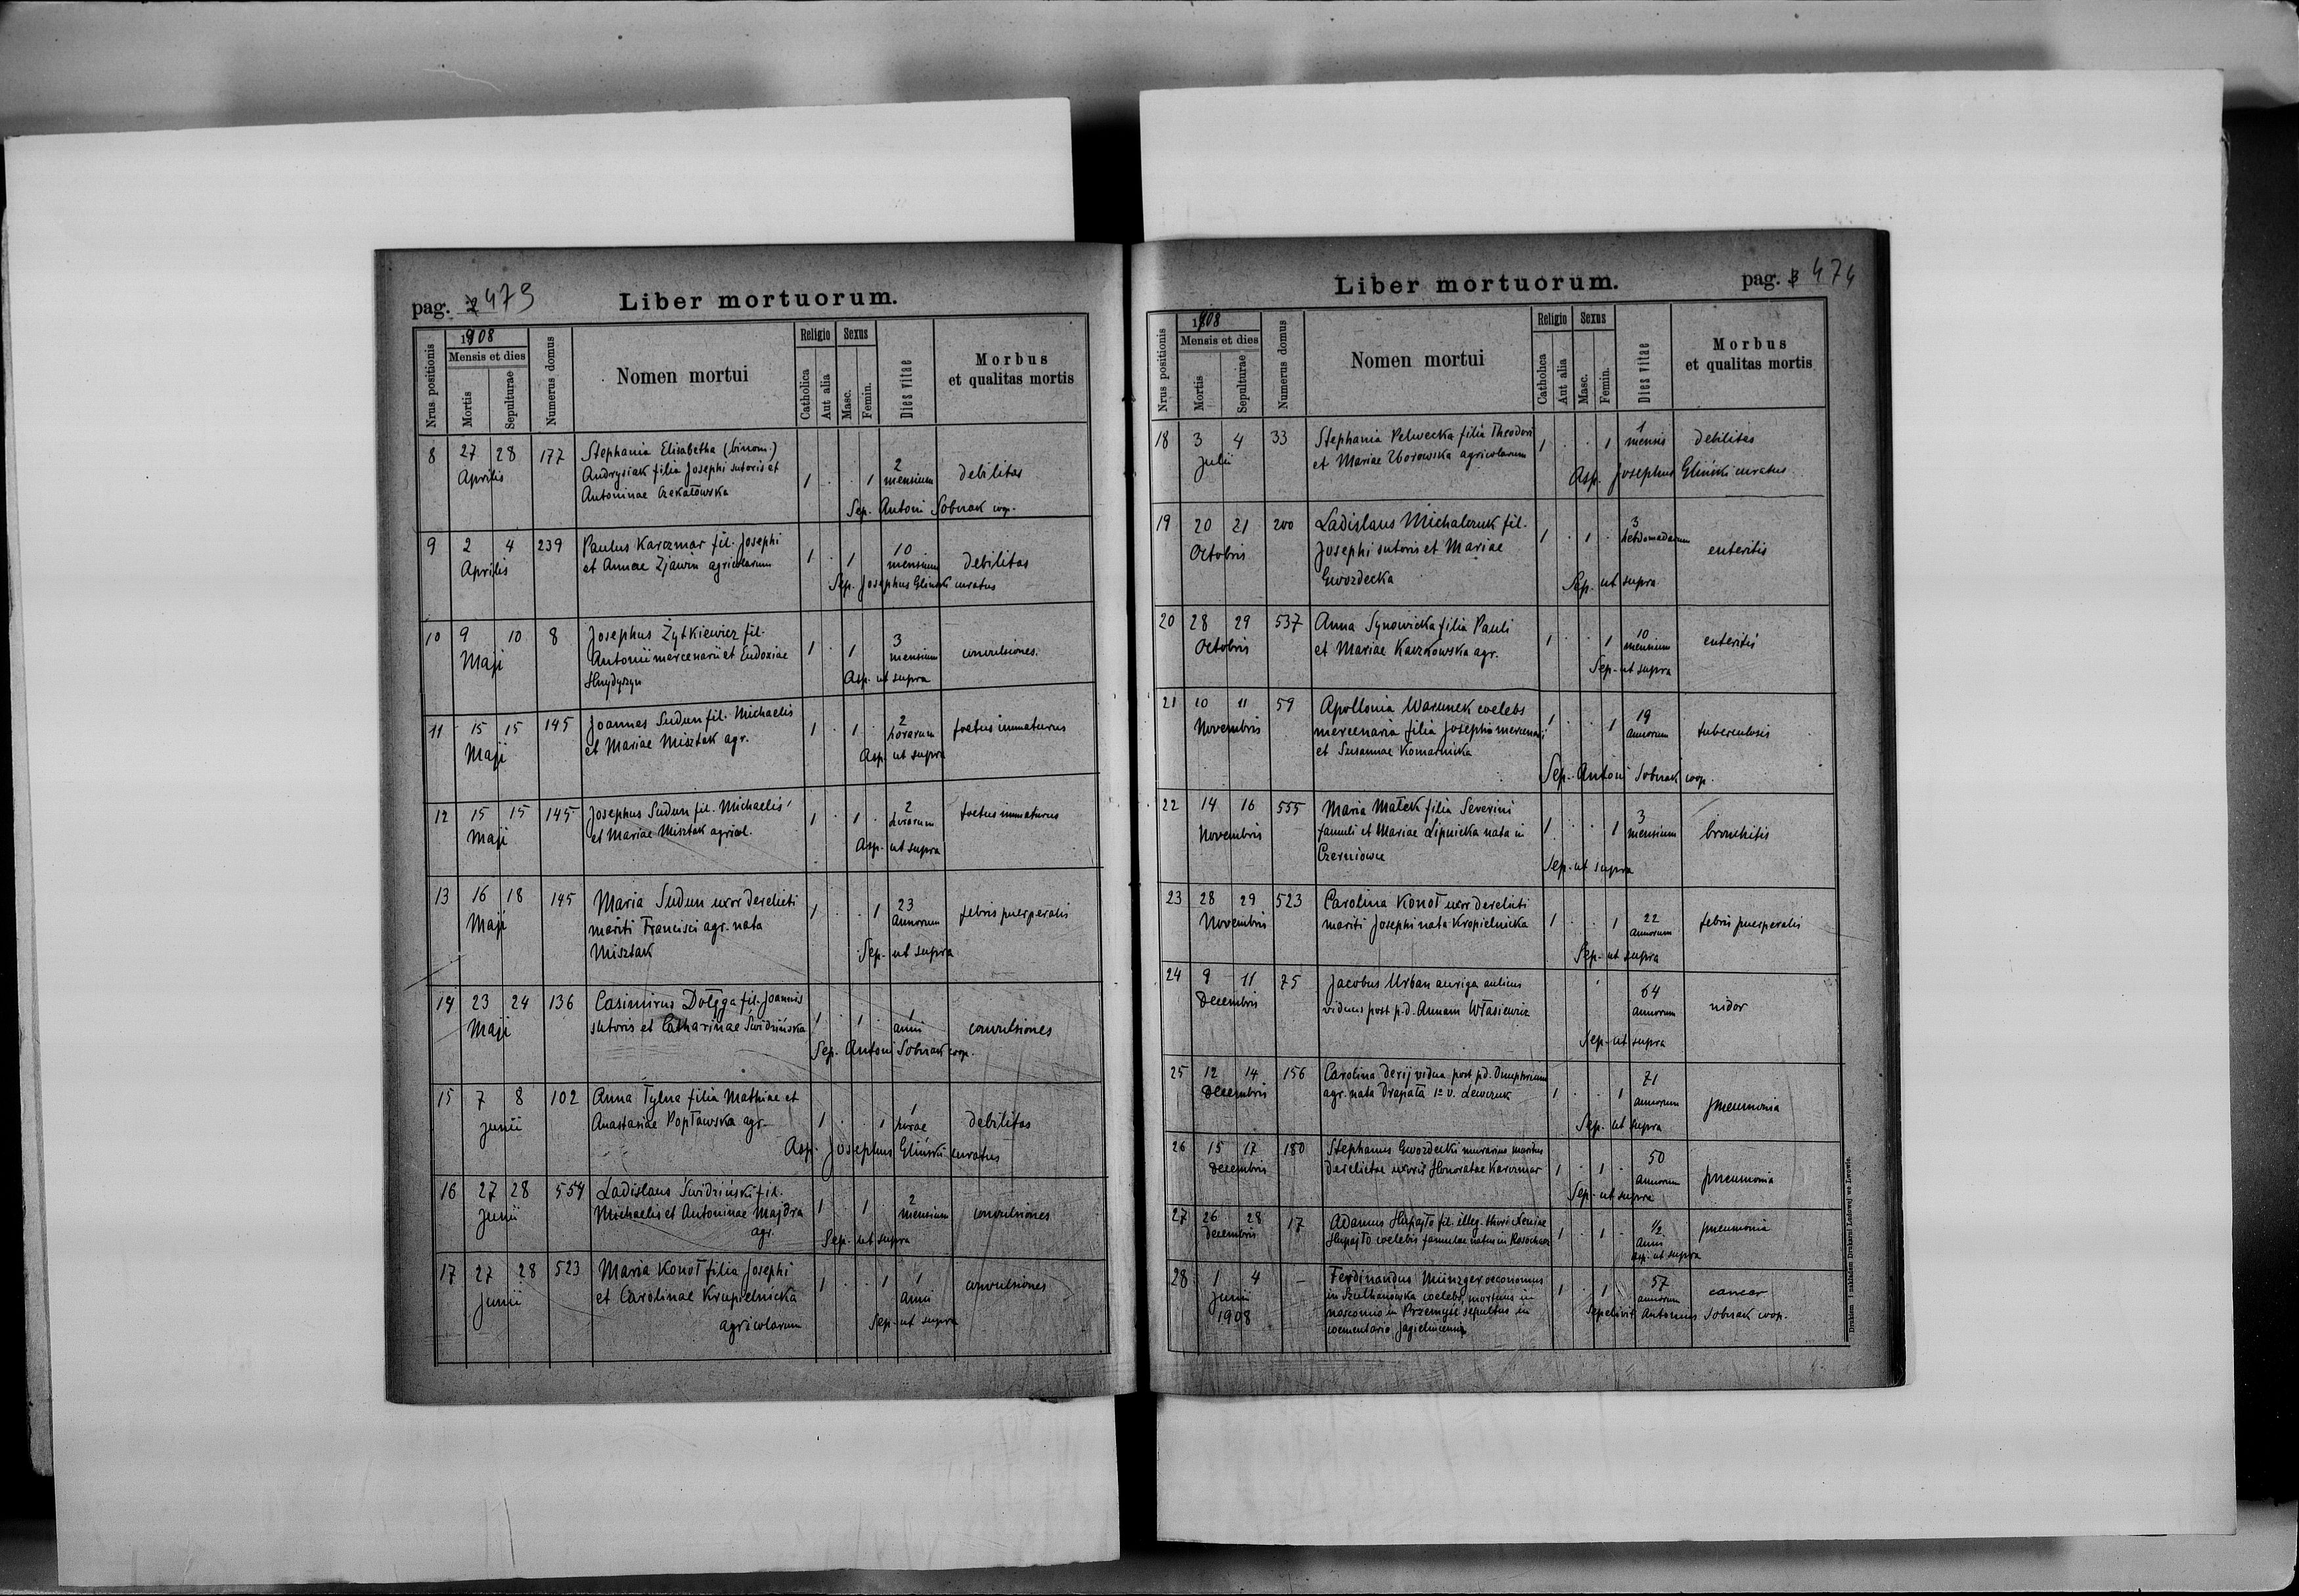 pag. 2 473
Liber mortuorum.
Nrus positionis
1908
Mensis et dies
Mortis
Sepulturae
Numerus domus
Nomen mortui
Religio
Catholica
Aut alia
Sexus
Masc.
Femin.
Dies vitae
Morbus
et qualitas mortis
8 27 28 177 Stephania Elisabetha (binom.)
Aprilis Andrysiak filia Josephi sutoris et
Antoninae Czekałowska
1 . . 1 2 mensium debilitas
Sep. Antoni Sobczak coop.
9 2 4 239 Paulus Karczmar fil. Josephi
Aprilis et Annae Zjawin agricolarum
1 . 1 10 mensium debilitas
Sep. Josephus Gliński curatus
10 9 10 8 Josephus Żytkiewicz fil.
Maji Antonii mercenarii et Eudoxiae
1 . 1 3 mensium convulsiones.
Asp. ut supra
11 15 15 145 Joannes Sudun fil. Michaelis
Maji et Mariae Misztak agr.
1 . 1 . 2 horarum foetus immaturus
Asp. ut supra
12 15 15 145 Josephus Sudun fil. Michaelis
Maji et Mariae Misztak agricol.
1 . 1 . 2 horarum foetus immaturus
Asp. ut supra
13 16 18 145 Maria Sudun uxor derelicti
Maji mariti Francisci agr. nata
Misztak
1 . . 1 23 annorum febris puerperalis
Sep. ut supra
14 23 24 136 Casimirus Dołęga fil. Joannis
Maji sutoris et Catharinae Świdzińska
1 . 1 . 1 anni convulsiones
Sep. Antoni Sobczak coop.
15 7 8 102 Anna Tylna filia Mathiae et
Junii Anastasiae Popławska agr.
1 . . 1 1 horae debilitas
Asp. Josephus Gliński curatus
16 27 28 554 Ladislaus Świdziński fil.
Junii Michaelis et Antoninae Majdra
agr.
1 . 1 . 2 mensium convulsiones
Sep. ut supra
17 27 28 523 Maria Konoł filia Josephi
Junii et Carolinae Krupielnicka
agricolarum
1 . . 1 1 anni convulsiones
Sep. ut supra
Liber mortuorum.
pag. 3 474
Nrus positionis
1908
Mensis et dies
Mortis
Sepulturae
Numerus domus
Nomen mortui
Religio
Catholica
Aut alia
Sexus
Masc.
Femin.
Dies vitae
Morbus
et qualitas mortis
18 3 4 33 Stephania Pelwecka filia Theodori
Julii et Mariae Zborowska agricolarum
1 . . 1 1 mensis debilitas
Asp. Josephus Gliński curatus
19 20 21 200 Ladislaus Michalczuk fil.
Octobris Josephi sutoris et Mariae
Gwozdecka
1 . 1 . 3 hebdomadarum enteritis
Sep. ut supra
20 28 29 537 Anna Synowicka filia Pauli
Octobris et Mariae Kaczkowska agr.
1 . . 1 10 mensium enteritis
Sep. ut supra
21 10 11 59 Apollonia Warunek coelebs
Novembris mercenaria filia Josephi mercenarii
et Susannae Komarnicka
1 . . 1 19 annorum tuberculosis
Sep. Antoni Sobczak coop.
22 14 16 555 Maria Małek filia Severini
Novembris famuli et Mariae Lipnicka nata in
Czerniowce
1 . . 1 3 mensium bronchitis
Sep. ut supra
23 28 29 523 Carolina Konoł uxor derelicti
Novembris mariti Josephi nata Kropielnicka
1 . . 1 22 annorum febris puerperalis
Sep. ut supra
24 9 11 75 Jacobus Urban auriga aulicus
Decembris viduus post p.d. Annam Własiewicz
64 annorum nidor
Sep. ut supra
25 12 14 156 Carolina Derij vidua post p.d. Onuphrium
Decembris agr. nata Drapała 1º v. Lewczuk
1 . . 1 71 annorum pneumonia
Sep. ut supra
26 15 17 180 Stephanus Gwozdecki murarius maritus
Decembris derelictae uxoris Honoratae Karczmar
1 . 1 . 50 annorum pneumonia
Sep. ut supra
27 26 28 17 Adamus Hupajło fil. illeg. thori
Decembris Hupajło coelebis famulae natus in Rosochacz
1 . 1 . ½ anni pneumonia
Asp. ut supra
28 1 4 – Ferdinandus Münzger oeconomus
Junii in Szulhanówka coelebs, mortuus in
1908 noscomio in Przemyśl sepultus in
coementario Jagielnicensi
1 . 1 57 annorum cancer
Sepelivit Antonius Sobczak coop.
Drukiem i nakładem Drukarni Ludowej we Lwowie.